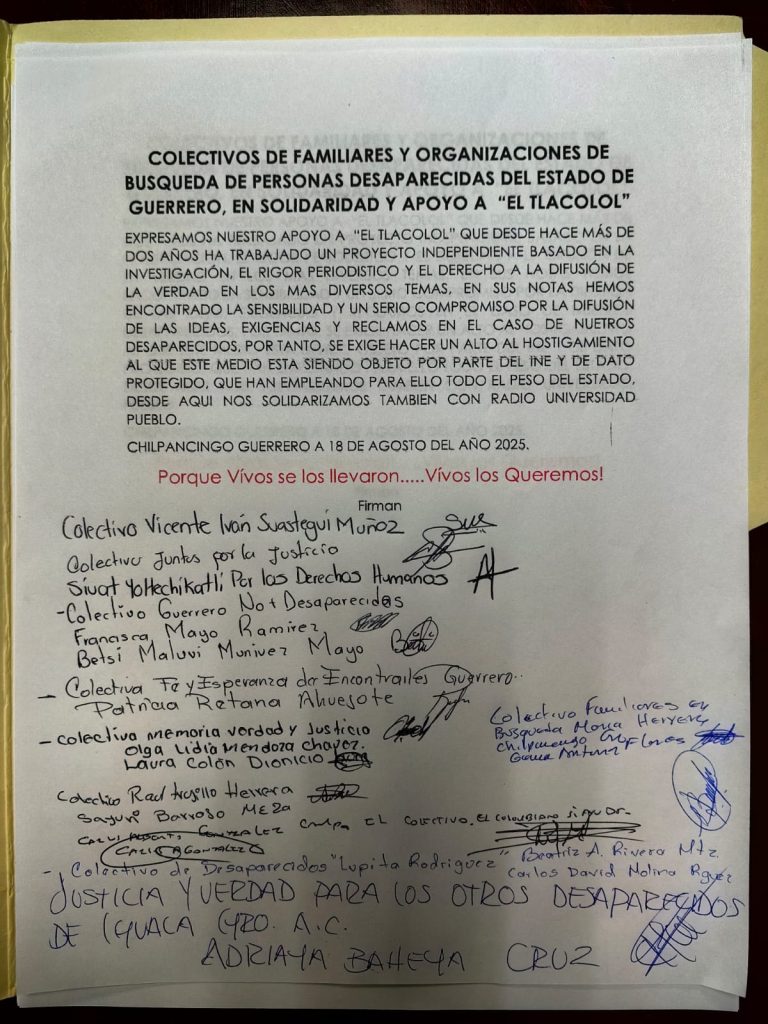 COLECTIVOS DE FAMILIARES Y ORGANIZACIONES DE
BUSQUEDA DE PERSONAS DESAPARECIDAS DEL ESTADO DE
GUERRERO, EN SOLIDARIDAD Y APOYO A “EL TLACOLOL”
EXPRESAMOS NUESTRO APOYO A “EL TLACOLOL” QUE DESDE HACE MÁS DE
DOS AÑOS HA TRABAJADO UN PROYECTO INDEPENDIENTE BASADO EN LA
INVESTIGACIÓN, EL RIGOR PERIODISTICO Y EL DERECHO A LA DIFUSIÓN DE
LA VERDAD EN LOS MAS DIVERSOS TEMAS, EN SUS NOTAS HEMOS
ENCONTRADO LA SENSIBILIDAD Y UN SERIO COMPROMISO POR LA DIFUSIÓN
DE LAS IDEAS, EXIGENCIAS Y RECLAMOS EN EL CASO DE NUETROS
DESAPARECIDOS, POR TANTO, SE EXIGE HACER UN ALTO AL HOSTIGAMIENTO
AL QUE ESTE MEDIO ESTA SIENDO OBJETO POR PARTE DEL INE Y DE DATO
PROTEGIDO, QUE HAN EMPLEANDO PARA ELLO TODO EL PESO DEL ESTADO,
DESDE AQUI NOS SOLIDARIZAMOS TAMBIEN CON RADIO UNIVERSIDAD
PUEBLO.
CHILPANCINGO GUERRERO A 18 DE AGOSTO DEL AÑO 2025.
Porque Vívos se los llevaron.....Vívos los Queremos!
Firman
Colectivo Vicente Iván Suastegui Muñoz
Colectivo Juntos por la Justicia
Por los Derechos Humanos
-Colectivo Guerrero No+Desaparecidos
Francisca Mayo Ramirez
Betsi Maluvi Munivez Mayo
- Colectiva Fe y Esperanza de Encontrarles Guerrero..
Patricia Retana Ahuejote
- Colectiva memoria verdad y Justicia
Olga Lidia Mendoza Chavez.
Laura Colón Dionicio
Colectivo Familiares en
Busqueda María Herrera
Chilpancingo
Colectivo Raul trujillo Herrera
Sayuri Barroso Meza
GONZALEZ EL COLECTIVO.
- Colectivo de Desaparecidos "Lupita Rodriguez"
Beatriz A. Rivera Mtz.
Carlos David Molina
JUSTICIA Y VERDAD PARA LOS OTROS DESAPARECIDOS
DE IGUALA GRO. A.C.
ADRIANA BAHENA CRUZ